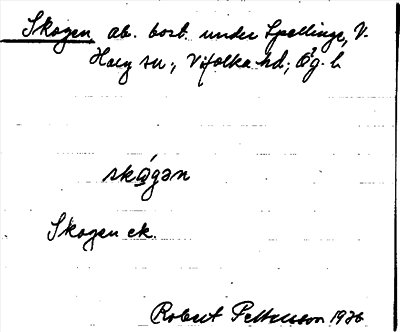 Skogen, ab. bosb. under Spellinge, V.
Harg sn., Vifolka hd; Ög. l.
skógən
Skogen ek.
Robert Pettersson 1926